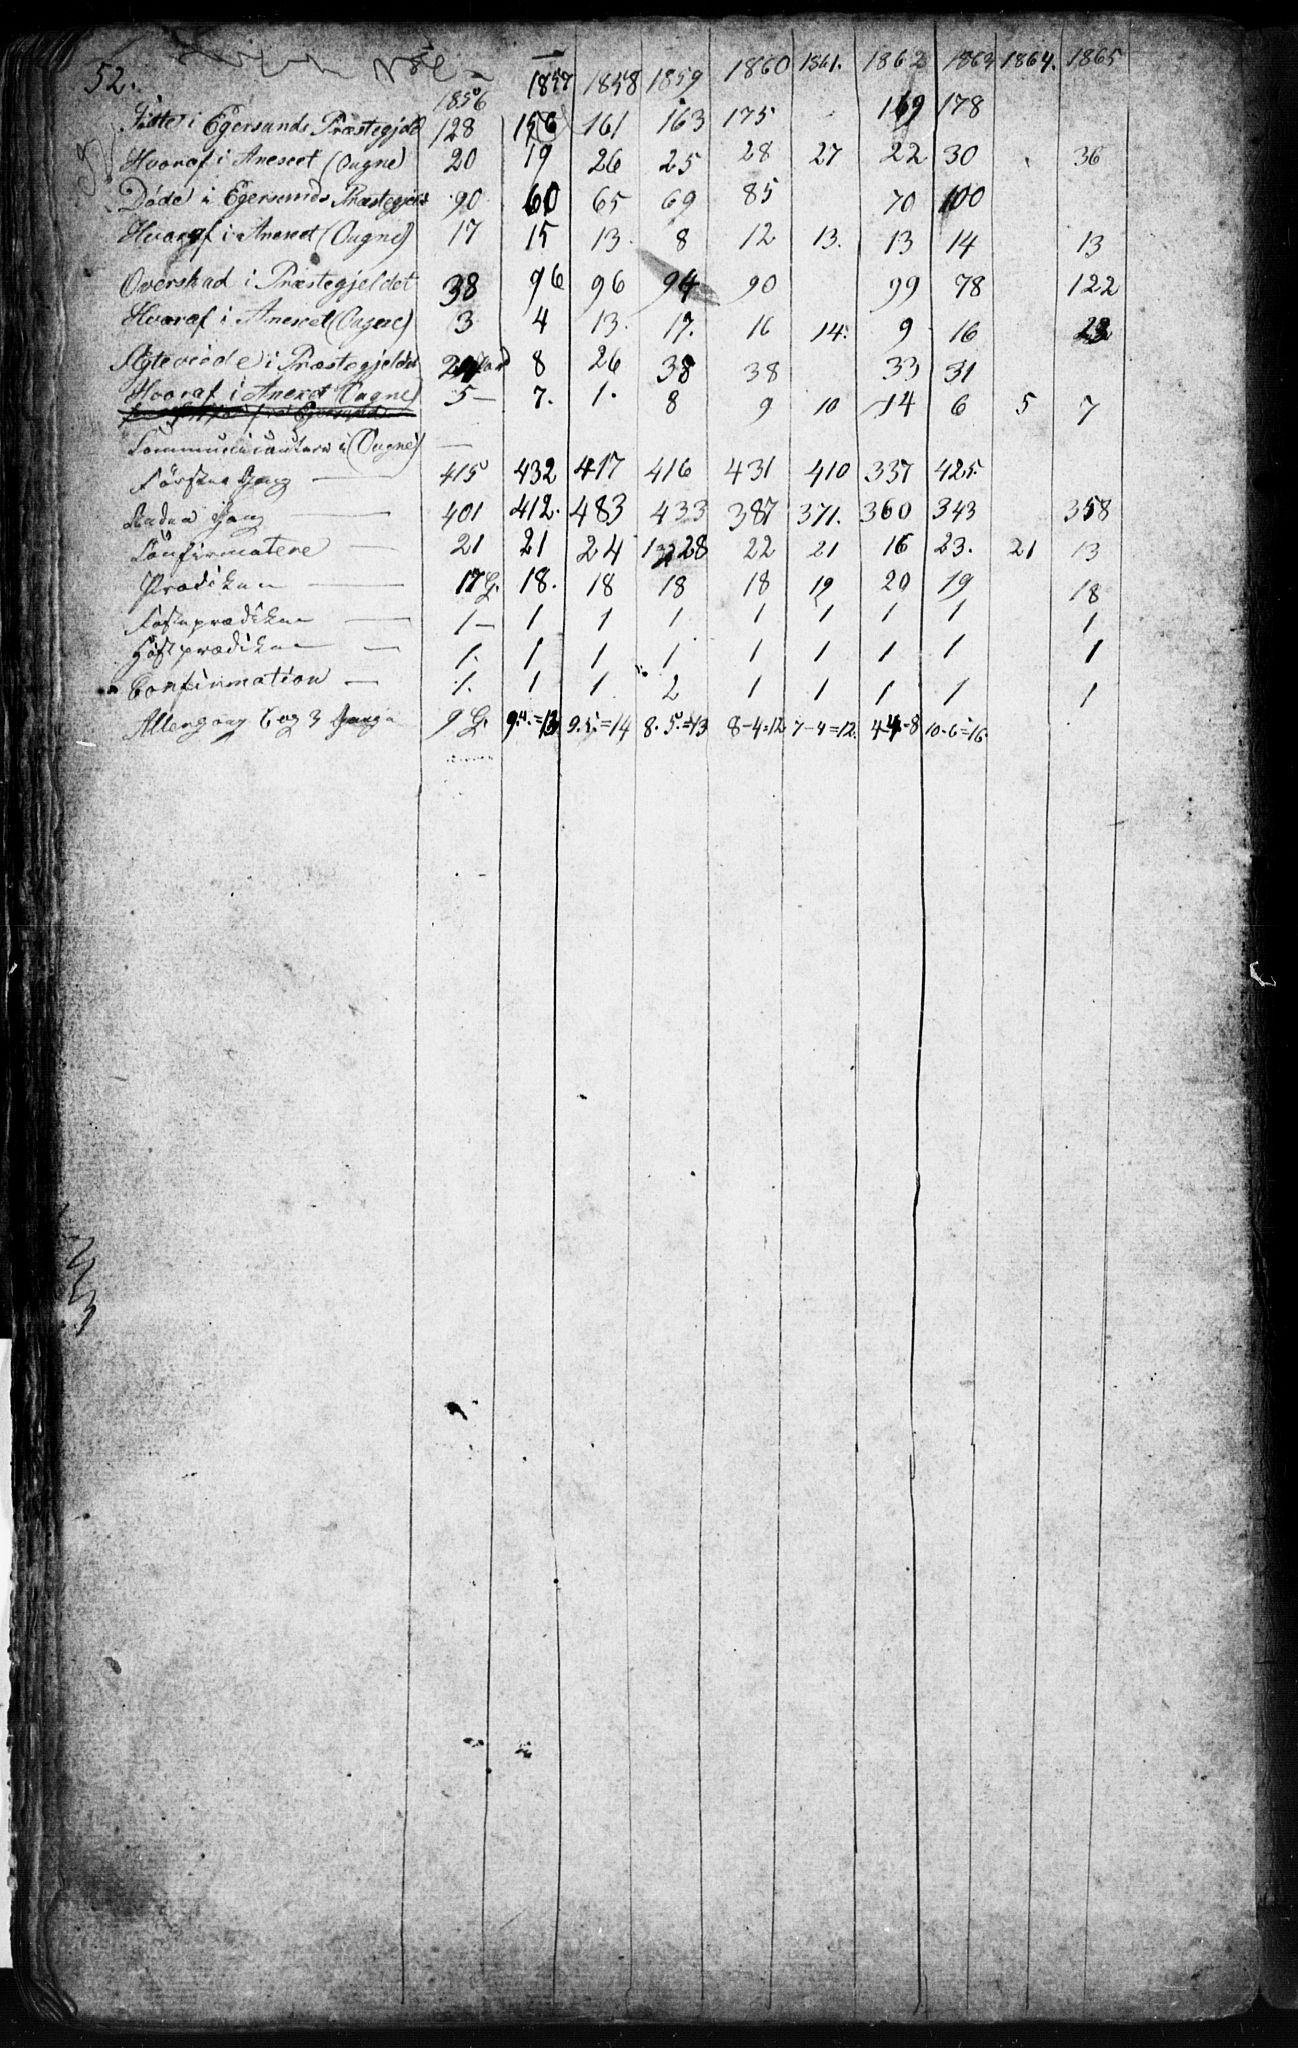 52.
1856 1857 1858 1859 1860 1861. 1862 1863 1864. 1865
Födte i Egersunds Præstegjeld 128 156 161 163 175 169 178
Hvoraf i Anexet (Ougne) 20 19 26 25 28 27 22 30 36
Døde i Egersunds Præstegjeld 90 60 65 69 85 70 100
Hvoraf i Anexet (Ougne) 17 15 13. 8 12 13. 13 14 13
Overskud i Præstegjeldet 38 96 96 94 90 99 78 122
Hvoraf i Anexet (Ougne) 3 4 13. 17. 16 14. 9 16 23
Ægteviede i Præstegjeldet 8 26 38 38 33 31
Hvoraf i Anexet (Ougne) 5 – 7. 1. 8 9 10 14 6 5 7
Communicantere i (Ougne) —
Förstne Gang — 415 432 417 416 431 410 337 425
Anden Gang — 401 412. 483 433 387 371. 360 343 358
Confirmatere — 21 21 24 28 22 21 16 23. 21 13
Prædiken — 17 G. 18. 18 18 18 19 20 19 18
Fasteprædiken — 1 – 1 1 1 1 1 1 1 1
Höstprædiken — 1. 1 1 1 1 1 1 1 1
Confirmation — 1. 1 1 2 1 1 1 1 1
Altergang 6 og 3 Gange 9 G. 9.4.=13 9.5.=14 8.5.=13 8–4=12 7–4=12. 4–4–8 10–6=16.